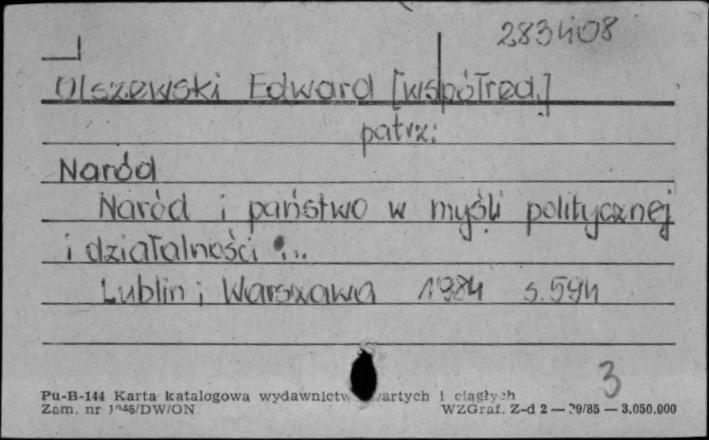 283408
Olszewski Edward [współred.]
patrz:
Naród
Naród i państwo w myśli politycznej
i działalności ...
Lublin; Warszawa 1984 s. 594
3
Pu-B-144 Karta katalogowa wydawnictw zwartych i ciągłych
Zam. nr /DW/ON WZGraf. Z-d 2 — 29/85 — 3.050.000